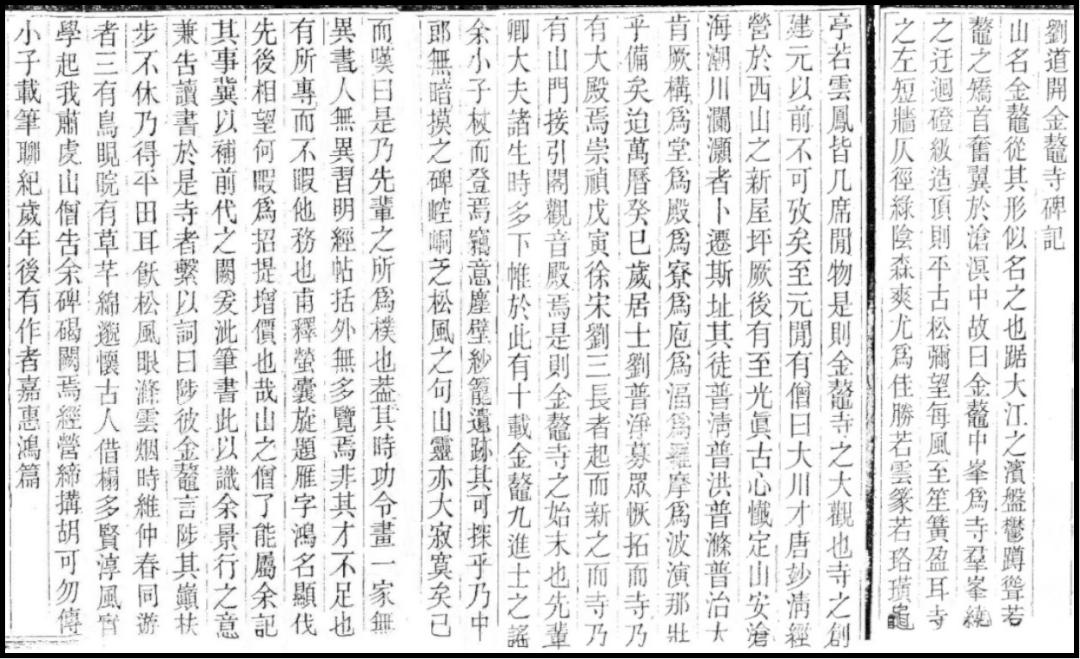 劉道開金鼇寺碑記
山名金鼇從其形似名之也踞大江之濱盤鬱蹲聳若
鼇之矯首奮翼於滄溟中故曰金鼇中峯爲寺羣峯繞
之迂迴磴級造頂則平古松彌望每風至笙簧盈耳寺
之左短牆仄徑綠陰森爽尤爲佳勝若雲篆若珞璜龜
亭若雲鳳皆几席閒物是則金鼇寺之大觀也寺之創
建元以前不可攷矣至元閒有僧曰大川才唐妙淸經
營於西山之新屋坪厥後有至光眞古心懺定山安滄
海潮川瀾灝者卜遷斯址其徒普淸普洪普滌普治大
肯厥構爲堂爲殿爲寮爲庖爲湢爲維摩爲波演那壯
乎備矣迨萬曆癸巳歲居士劉普淨募眾恢拓而寺乃
有大殿焉崇禎戊寅徐宋劉三長者起而新之而寺乃
有山門接引閣觀音殿焉是則金鼇寺之始末也先輩
卿大夫諸生時多下帷於此有十載金鼇九進士之謠
余小子杖而登焉竊意塵壁紗籠遺跡其可探乎乃中
郎無暗摸之碑崆峒乏松風之句山靈亦大寂寞矣已
而嘆曰是乃先輩之所爲樸也葢其時功令畫一家無
異書人無異習明經帖括外無多覽焉非其才不足也
有所專而不暇他務也甫釋螢囊旋題雁字鴻名顯伐
先後相望何暇爲招提增價也哉山之僧了能屬余記
其事冀以補前代之闕爰泚筆書此以識余景行之意
兼告讀書於是寺者繫以詞曰陟彼金鼇言陟其巔杖
步不休乃得平田耳飫松風眼滌雲烟時維仲春同游
者三有鳥睍睆有草芊綿遯懷古人借榻多賢淳風實
學起我肅虔山僧告余碑碣闕焉經營締搆胡可勿傳
小子載筆聯紀歲年後有作者嘉惠鴻篇